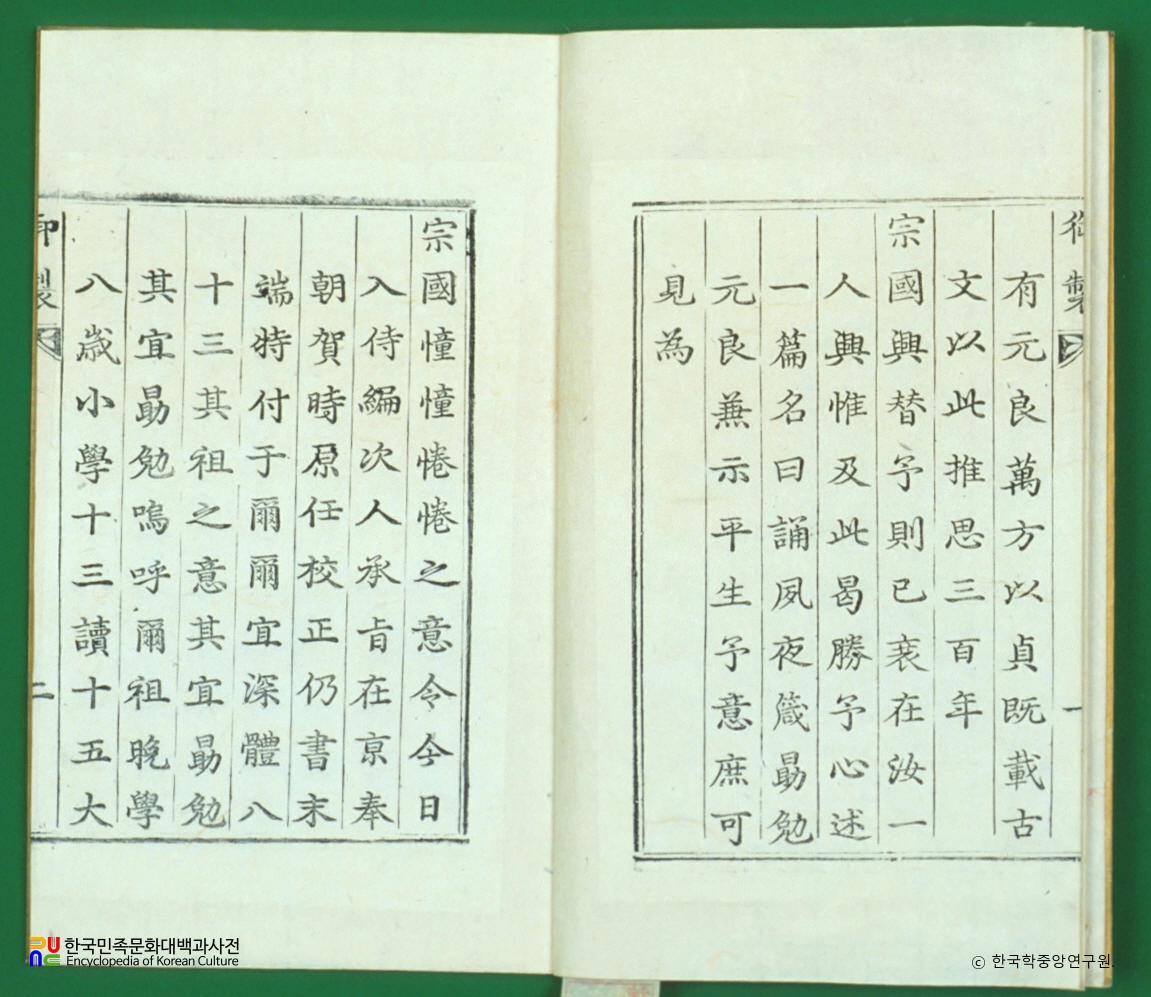 御製
一
有元良萬方以貞既載古
文以此推思三百年
宗國興替予則已衰在汝一
人興惟及此曷勝予心述
一篇名曰誦夙夜箴勗勉
元良兼示平生予意庶可
見為
宗國憧憧惓惓之意令今日
入侍編次人承旨在京奉
朝賀時原任校正仍書末
端特付于爾爾宜深體八
十三其祖之意其宜勗勉
其宜勗勉嗚呼爾祖晚學
八歲小學十三讀十五大
御製
二
한국민족문화대백과사전
Encyclopedia of Korean Culture
ⓒ 한국학중앙연구원